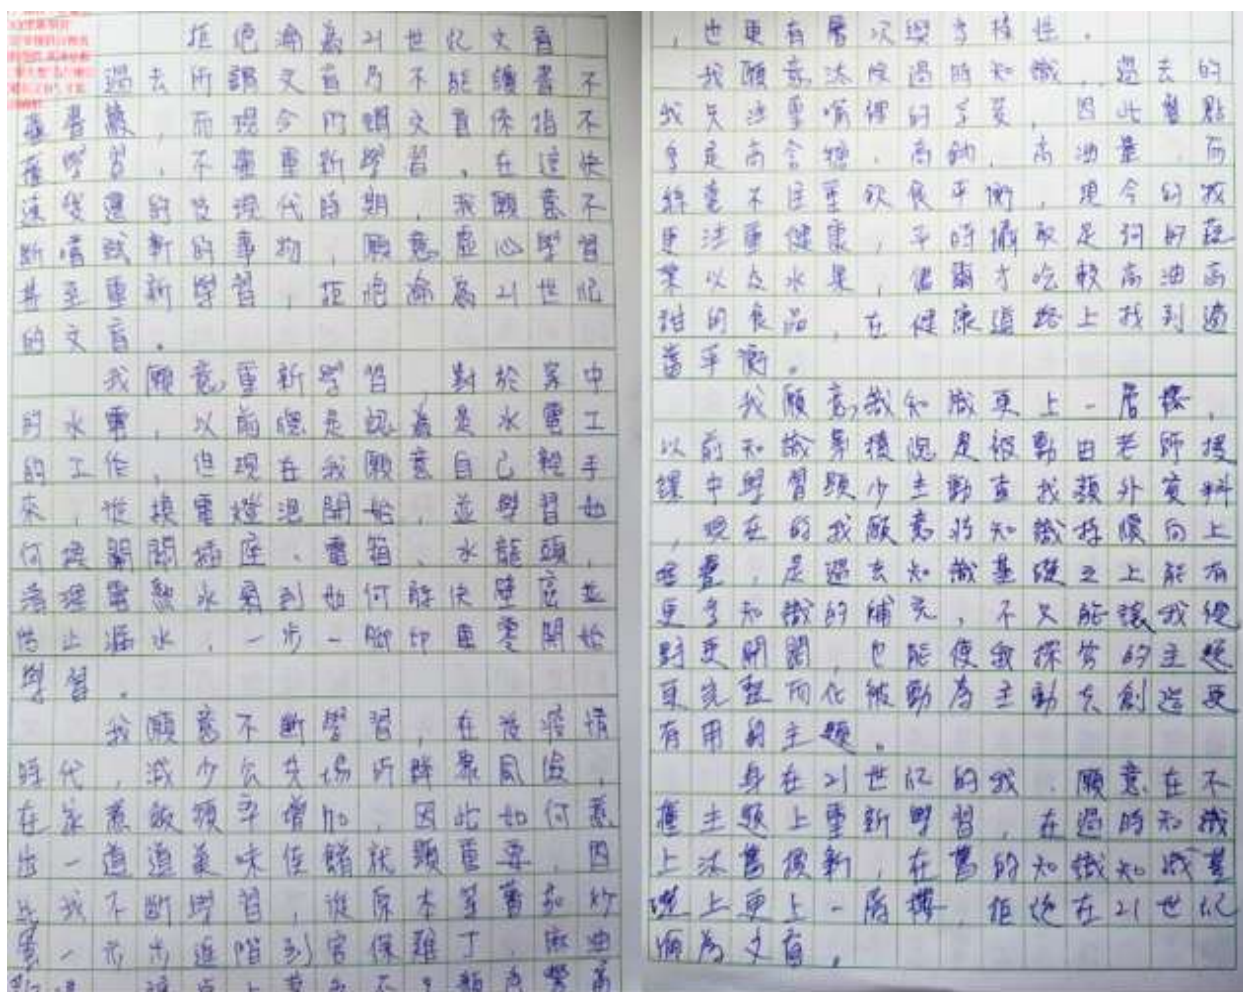 拒絕淪為21世紀文盲
過去所謂文盲乃不能讀書不
,而現今所謂文盲係指不
懂學習,不重新學習。在這快
速變遷的當現代時期,我願意不
斷嚐試新的事物,願意虛心學習
甚至重新學習,拒絕淪為21世紀
的文盲。
我願意重新學習,對於家中
的水電,以前總是認為是水電工
的工作,但現在我願意自己親手
來,從換電燈泡開始,並學習如
何換開關插座、電箱、水龍頭,
清理電熱水器到如何解決壁癌並
防止漏水,一步一腳印重零開始
學習。
我願意不斷學習,在後疫情
時代,減少公共場所群聚風險,
在家煮飯頻率增加,因此如何煮
出一道道美味佳餚就顯重要,因
為我不斷學習,從原本番茄炒
蛋一步步進階到宮保雞丁、麻油
,也更有層次與多樣性。
我願意汰除過時知識,過去的
我只注重嘴裡的享受,因此餐點
多是高含糖、高鈉、高油量,而
不注重飲食平衡,現今的我
更注重健康,平時攝取足夠的蔬
菜以及水果,偶爾才吃較高油高
甜的食品,在健康道路上找到適
當平衡。
我願意我知識更上一層樓,
以前知識累積總是被動由老師授
課中學習頗少主動查找額外資料
,現在的我願意將知識持續向上
堆疊,是過去知識基礎之上能有
更多知識的補充,不只能讓我
更開闊,也能使我探究的主題
更完整而化被動為主動去創造更
有用的主題。
身在21世紀的我,願意在不
懂主題上重新學習,在過時知識
上汰舊換新,在舊的知識知識基
礎上更上一層樓,拒絕在21世紀
淪為文盲。